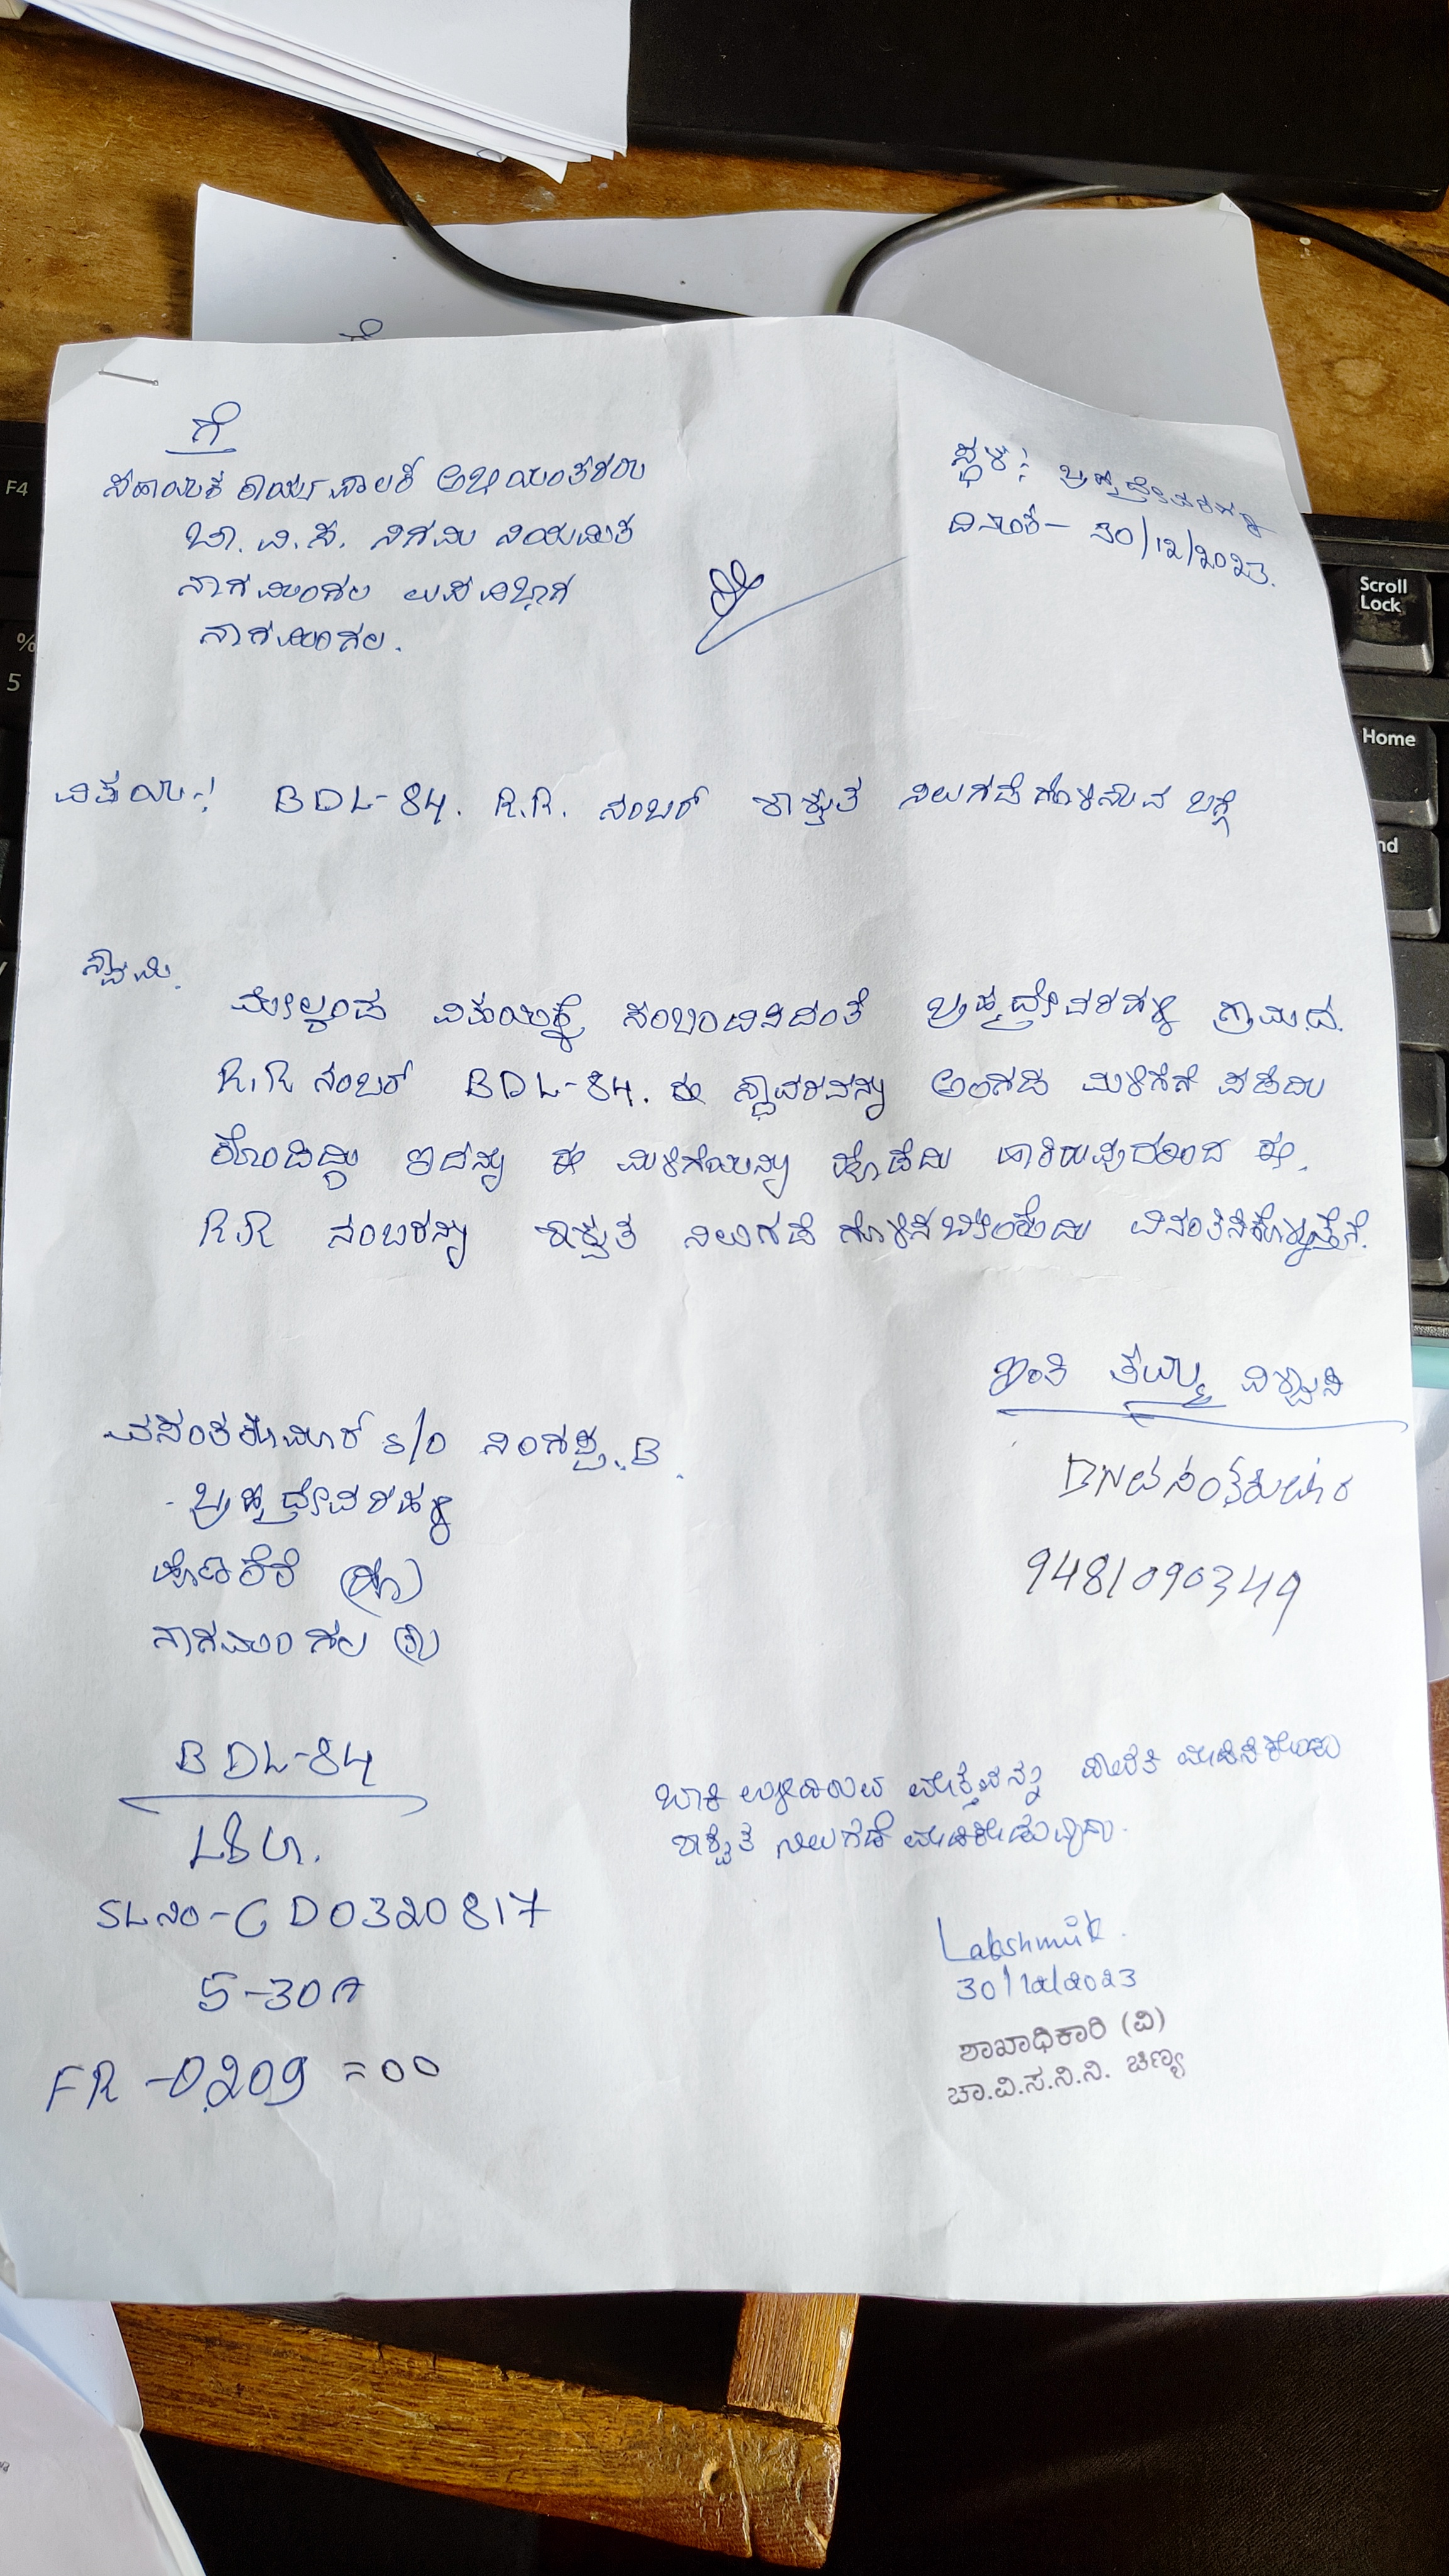 ಗೆ
ಸಹಾಯಕ ಕಾರ್ಯಪಾಲಕ ಅಭಿಯಂತರರು
ಚಾ. ವಿ. ಸ. ನಿಗಮ ನಿಯಮಿತ
ನಾಗಮಂಗಲ ಉಪವಿಭಾಗ
ನಾಗಮಂಗಲ.
ಸ್ಥಳ: ಬ್ರಹ್ಮದೇವರಹಳ್ಳಿ
ದಿನಾಂಕ- 30/12/2023.
ವಿಷಯ:- BDL-84. R.R. ನಂಬರ್ ಶಾಶ್ವತ ನಿಲುಗಡೆಗೊಳಿಸುವ ಬಗ್ಗೆ
ಸ್ವಾಮಿ.
ಮೇಲ್ಕಂಡ ವಿಷಯಕ್ಕೆ ಸಂಬಂದಿಸಿದಂತೆ ಬ್ರಹ್ಮದೇವರಹಳ್ಳಿ ಗ್ರಾಮದ.
R.R ನಂಬರ್ BDL-84. ಈ ಸ್ಥಾವರವನ್ನು ಅಂಗಡಿ ಮಳಿಗೆಗೆ ಪಡೆದು
ಕೊಂಡಿದ್ದು ಇದನ್ನು ಈ ಮಳಿಗೆಯನ್ನು ಹೊಡೆದು ಹಾಕಿರುವುದರಿಂದ ಈ.
R.R ನಂಬರನ್ನು ಶಾಶ್ವತ ನಿಲುಗಡೆ ಗೊಳಿಸಬೇಕೆಂದು ವಿನಂತಿಸಿಕೊಳ್ಳುತ್ತೇನೆ.
ಇಂತಿ ತಮ್ಮ ವಿಶ್ವಾಸಿ
BNವಸಂತಕುಮಾರ
9481090349
ವಸಂತಕುಮಾರ್ S/O ನಿಂಗಪ್ಪ.B.
ಬ್ರಹ್ಮದೇವರಹಳ್ಳಿ
ಹೊಣಕೆರೆ (ಹೋ)
ನಾಗಮಂಗಲ (ತಾ)
BDL-84
L&G.
SLನಂ-CD0320817
5-30A
FR-0209=00
ಬಾಕಿ ಉಳಿದಿರುವ ಮೊತ್ತವನ್ನು ಪಾವತಿ ಮಾಡಿಸಿಕೊಂಡು
ಶಾಶ್ವತ ನಿಲುಗಡೆ ಮಾಡಿಕೊಡುವುದು.
Lakshmi.k.
30/12/2023
ಶಾಖಾಧಿಕಾರಿ (ವಿ)
ಚಾ.ವಿ.ಸ.ನಿ.ನಿ. ಚಿಣ್ಯ
F4
%
5
Scroll
Lock
Home
nd